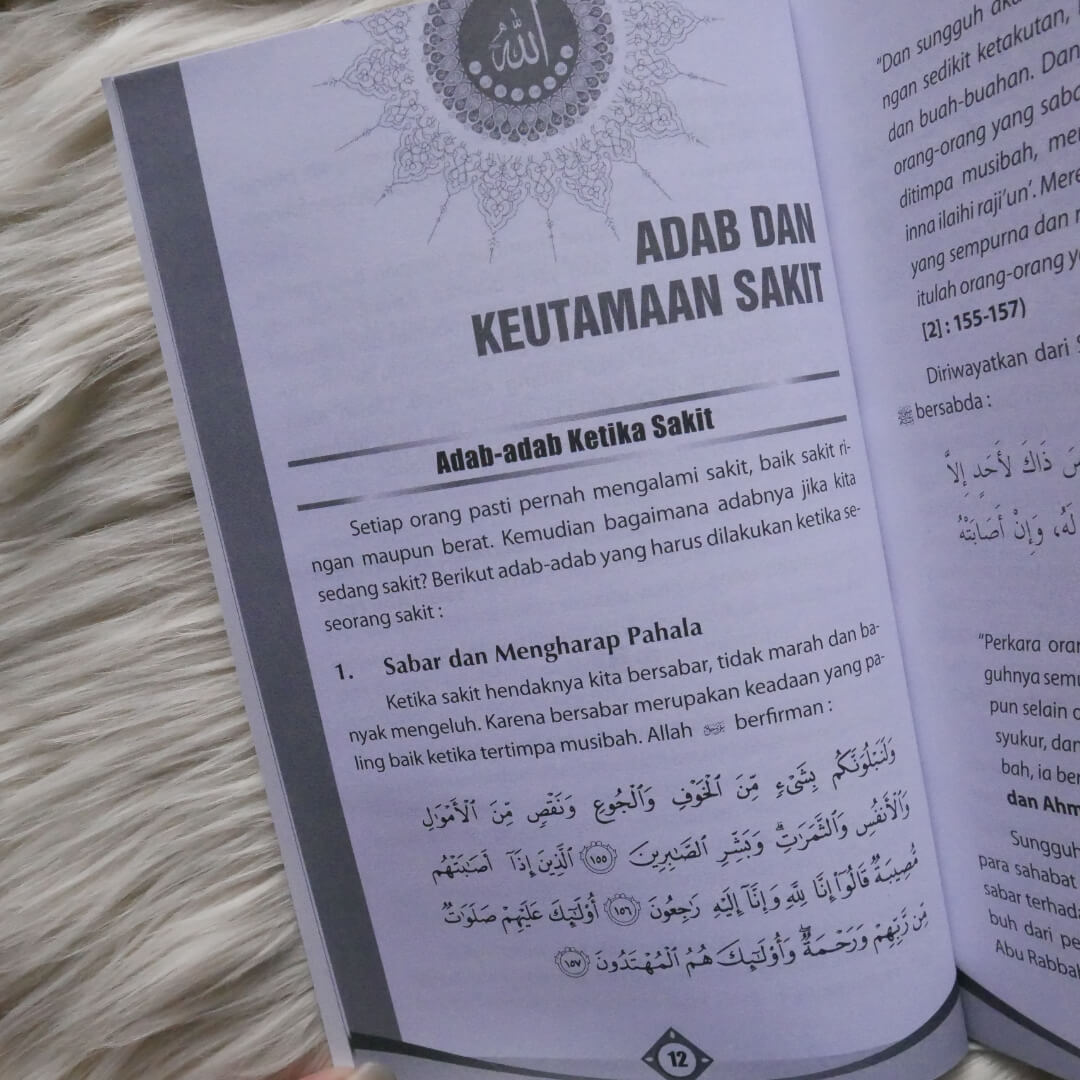 الله
ADAB DAN
KEUTAMAAN SAKIT
Adab-adab Ketika Sakit
Setiap orang pasti pernah mengalami sakit, baik sakit ri-
ngan maupun berat. Kemudian bagaimana adabnya jika kita
sedang sakit? Berikut adab-adab yang harus dilakukan ketika se-
seorang sakit :
1. Sabar dan Mengharap Pahala
Ketika sakit hendaknya kita bersabar, tidak marah dan ba-
nyak mengeluh. Karena bersabar merupakan keadaan yang pa-
ling baik ketika tertimpa musibah. Allah berfirman :
وَلَنَبْلُوَنَّكُم بِشَىْءٍ مِّنَ ٱلْخَوْفِ وَٱلْجُوعِ وَنَقْصٍ مِّنَ ٱلْأَمْوَٰلِ
وَٱلْأَنفُسِ وَٱلثَّمَرَٰتِ ۗ وَبَشِّرِ ٱلصَّٰبِرِينَ ١٥٥ ٱلَّذِينَ إِذَآ أَصَٰبَتْهُم
مُّصِيبَةٌ قَالُوٓا۟ إِنَّا لِلَّهِ وَإِنَّآ إِلَيْهِ رَٰجِعُونَ ١٥٦ أُو۟لَٰٓئِكَ عَلَيْهِمْ صَلَوَٰتٌ
مِّن رَّبِّهِمْ وَرَحْمَةٌ ۖ وَأُو۟لَٰٓئِكَ هُمُ ٱلْمُهْتَدُونَ ١٥٧
12
"Dan sungguh
ngan sedikit ketakutan,
dan buah-buahan. Dan
orang-orang yang
ditimpa musibah,
inna ilaihi raji'un'.
yang sempurna dan
itulah orang-orang
[2] : 155-157)
Diriwayatkan dari
ﷺ bersabda :
ذَاكَ لِأَحَدٍ إِلَّا
لَهُ، وَإِنْ أَصَابَتْهُ
"Perkara
guhnya
pun selain
syukur,
bah, ia
dan
Sungguh
para sahabat
sabar
buh dari
Abu